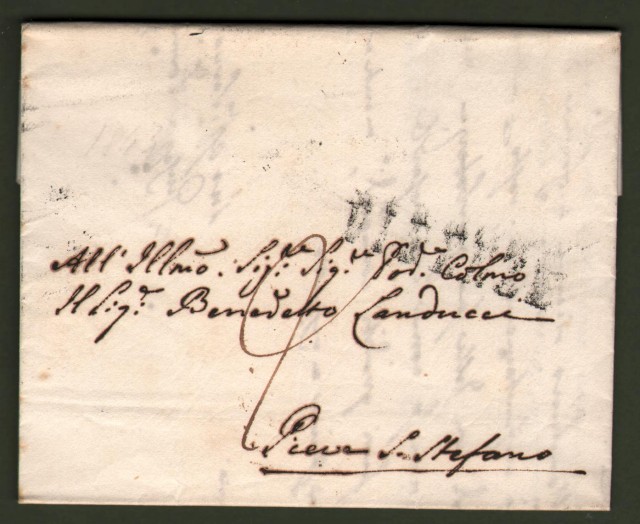 All' Illmo. Sigr. Sigr. Pod. Colmo
Il Sigr. Benedetto Landucci
Pieve S. Stefano